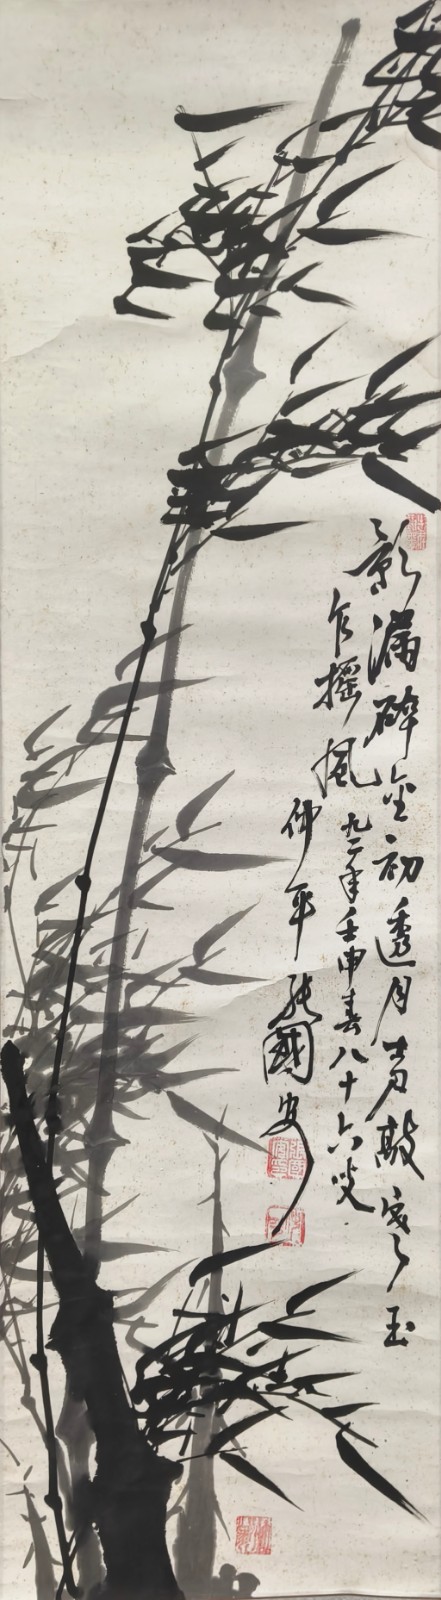 影滿碎金初透月声敲寒玉
乍摇風九二年壬申春八十六叟
仲平張國安